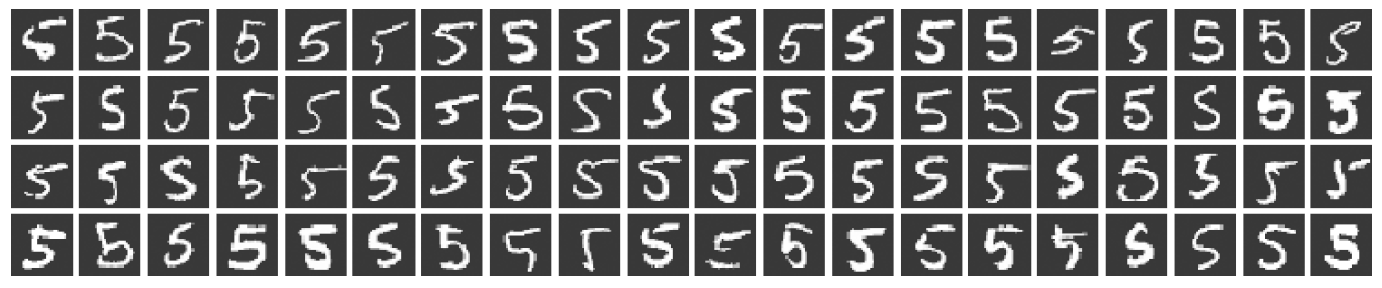 5 5 5 5 5 5 5 5 5 5 5 5 5 5 5 5 5 5 5 5
5 5 5 5 5 5 5 5 5 5 5 5 5 5 5 5 5 5 5 5
5 5 5 5 5 5 5 5 5 5 5 5 5 5 5 5 5 5 5 5
5 5 5 5 5 5 5 5 5 5 5 5 5 5 5 5 5 5 5 5